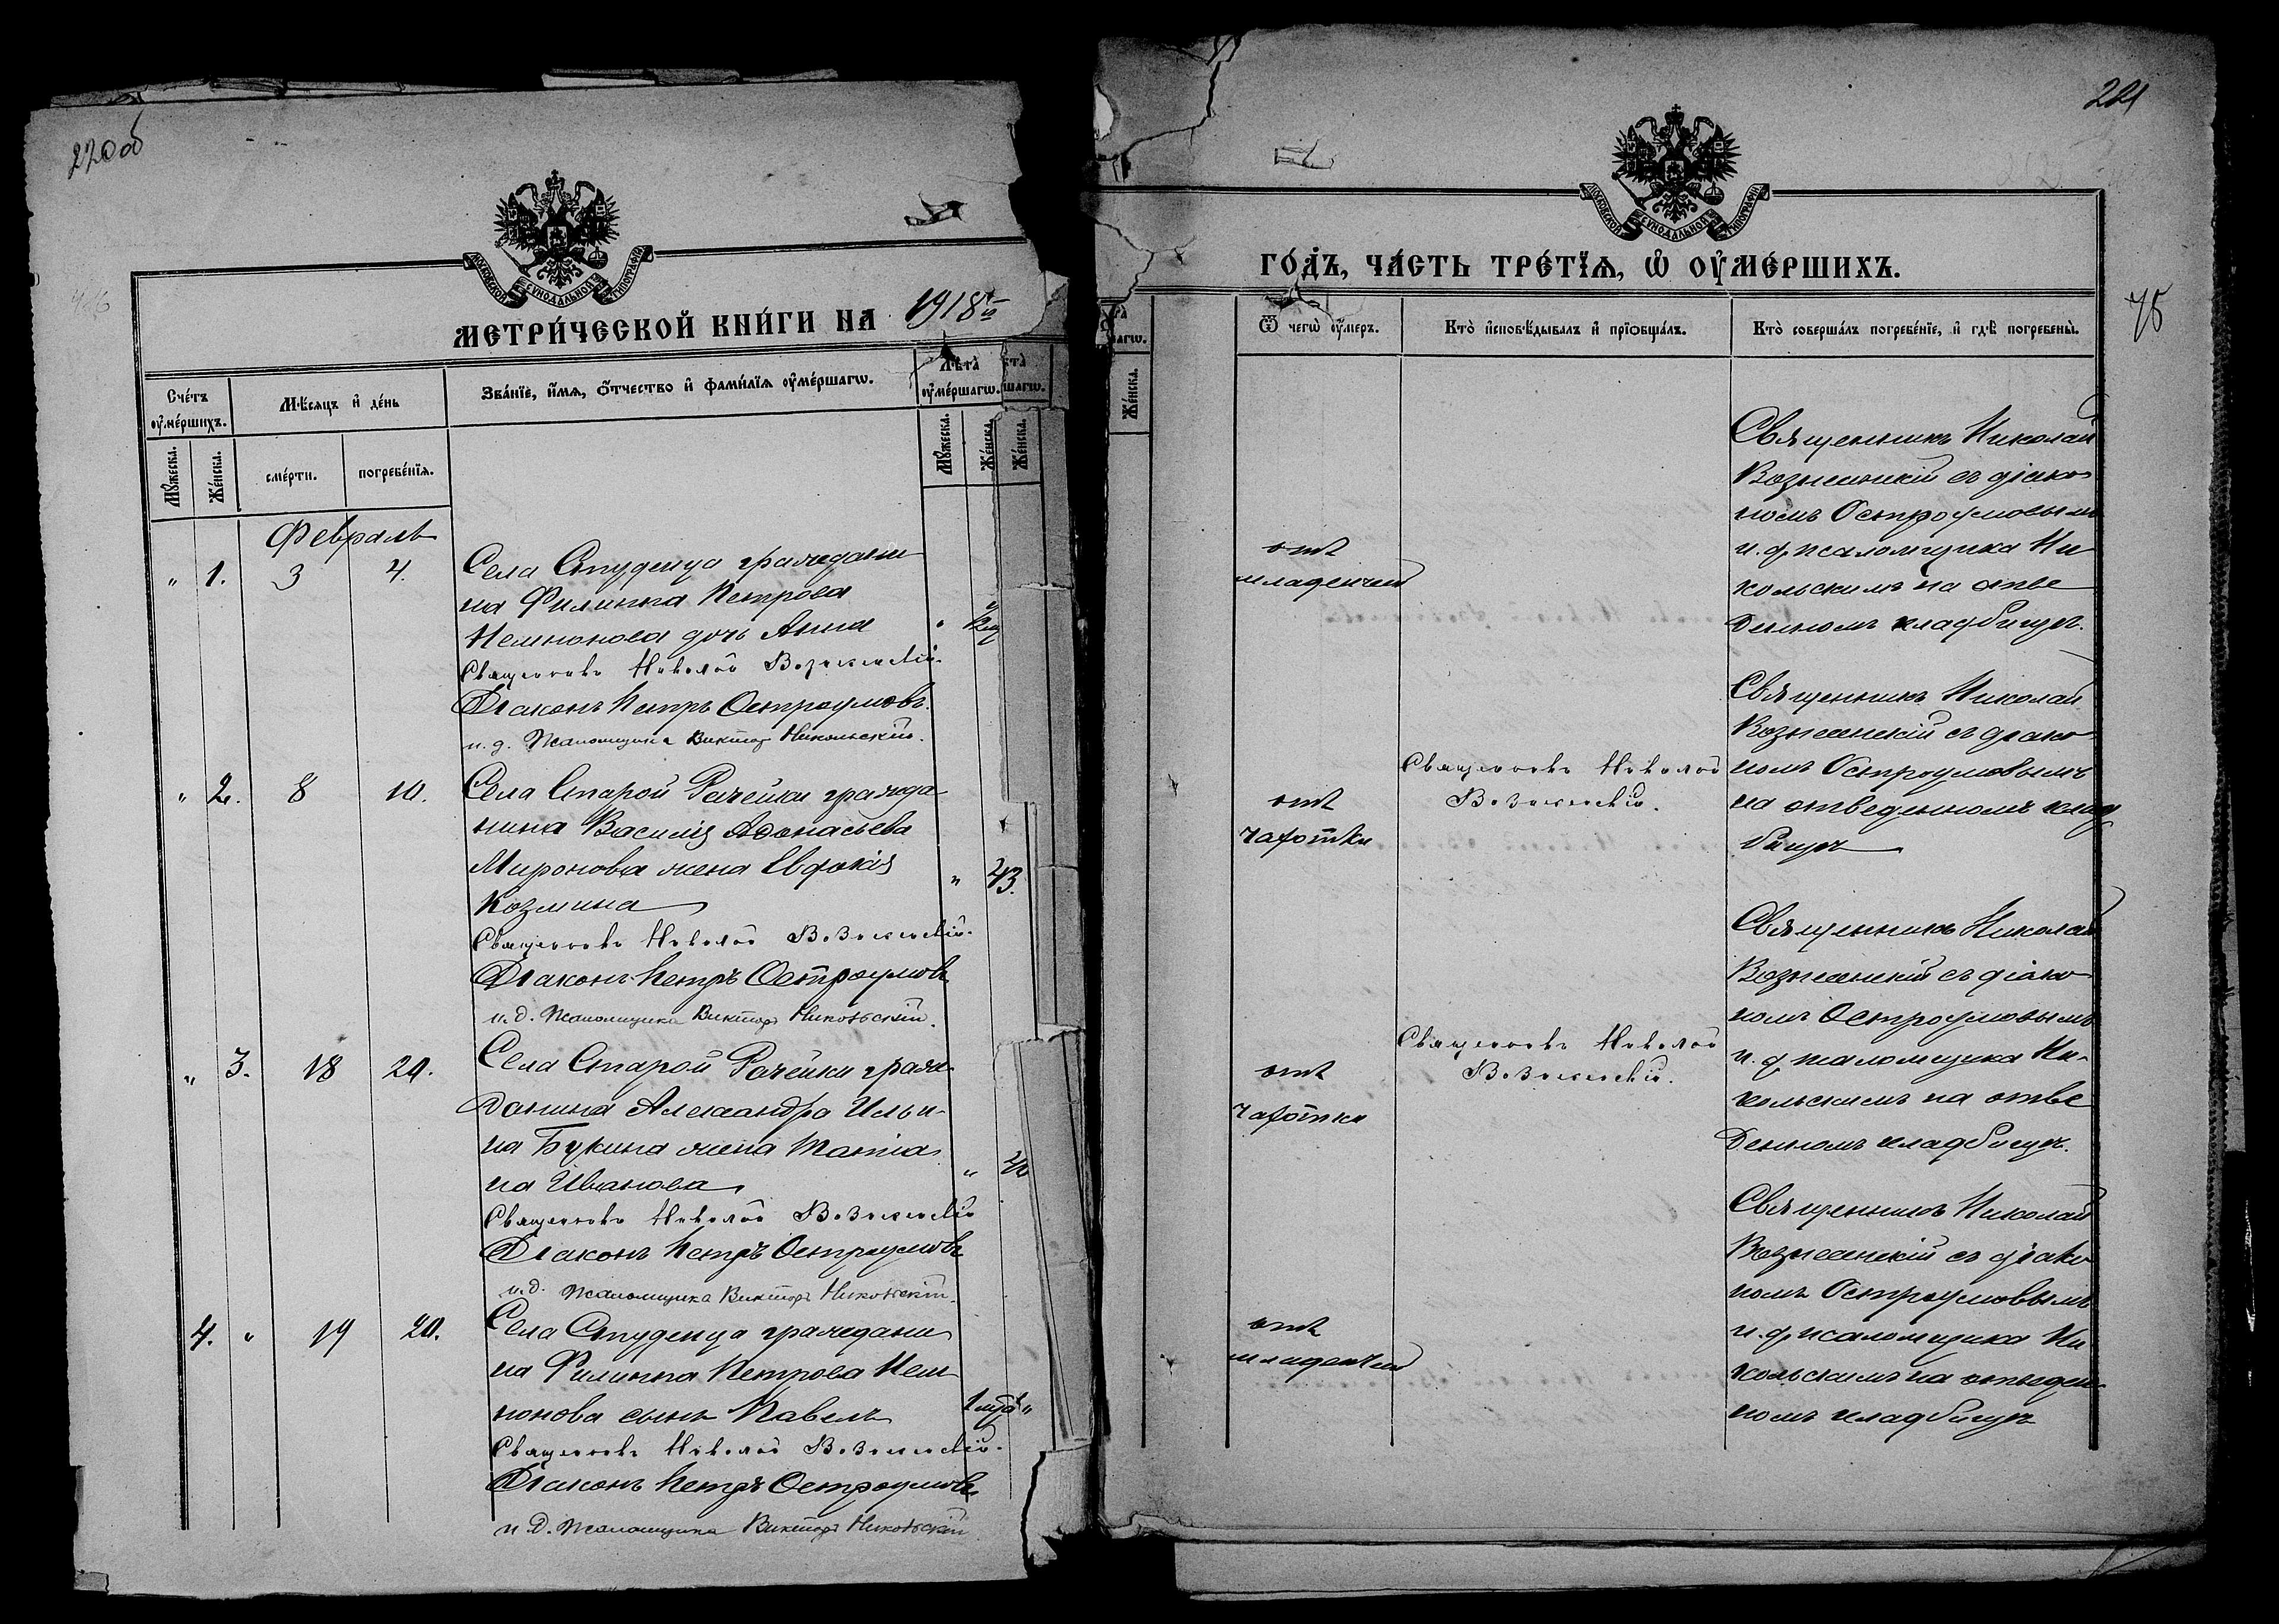 220об
МЕТРИ́ЧЕСКОЙ КНИ́ГИ НА 1918й
Сче́тъ ᲂу҆ме́ршихъ.
Мѣ́сяцъ и҆ де́нь
Зва́нїе, и҆́мя, ѻ҆́тчество и҆ фами́лїя ᲂу҆ме́ршагѡ.
Лѣ́та ᲂу҆ме́ршагѡ.
Мꙋ́жеска.
Же́нска.
сме́рти.
погребе́нїя.
Мꙋ́жеска.
Же́нска.
Же́нска.
Февраль
" 1. 3 4.
Села Студенца граждани
на Филиппа Петрова
дочь Анна
Священникъ Николай Вознесенскій.
Діаконъ Петръ Остроумовъ.
и. д. Псаломщика Викторъ Никольскій.
" 2. 8 10.
Села Старой Рачейки гражда
нина Василія Афонасьева
Миронова жена Евдокія
Козмина
" 43.
Священникъ Николай Вознесенскій.
Діаконъ Петръ Остроумовъ
и. д. Псаломщика Викторъ Никольскій.
" 3. 18 20.
Села Старой Рачейки граж
данина Александра Ильи
на Букина жена Татіа
на Иванова
Священникъ Николай Вознесенскій
Діаконъ Петръ Остроумовъ
и. д. Псаломщика Викторъ Никольскій.
4. " 19 20.
Села Студенца граждани
на Филиппа Петрова
сынъ Павелъ
Священникъ Николай Вознесенскій.
Діаконъ Петръ Остроумовъ
и. д. Псаломщика Викторъ Никольскій
221
75
ГО́ДЪ, ЧА́СТЬ ТРЕ́ТЇЯ, Ѡ҆ ᲂУ҆МЕ́РШИХЪ.
Ѿ чегѡ̀ ᲂу҆́меръ.
Кто̀ и҆сповѣ́дывалъ и҆ прїѡбща́лъ.
Кто̀ соверша́лъ погребе́нїе, и҆ гдѣ̀ погребены̀.
Же́нска.
отъ
младенчей
Священникъ Николай
Вознесенскій съ діако
номъ Остроумовымъ
и. д. псаломщика Ни
кольскимъ на отве
денномъ кладбищѣ.
отъ
чахотки
Священникъ Николай
Вознесенскій.
Священникъ Николай
Вознесенскій съ діако
номъ Остроумовымъ
на отведенномъ клад
бищѣ
отъ
чахотки
Священникъ Николай
Вознесенскій.
Священникъ Николай
Вознесенскій съ діако
номъ Остроумовымъ
и. д. псаломщика Ни
кольскимъ на отве
денномъ кладбищѣ.
отъ
младенчей
Священникъ Николай
Вознесенскій съ діако
номъ Остроумовымъ
и. д. псаломщика Ни
кольскимъ на отведен
номъ кладбищѣ